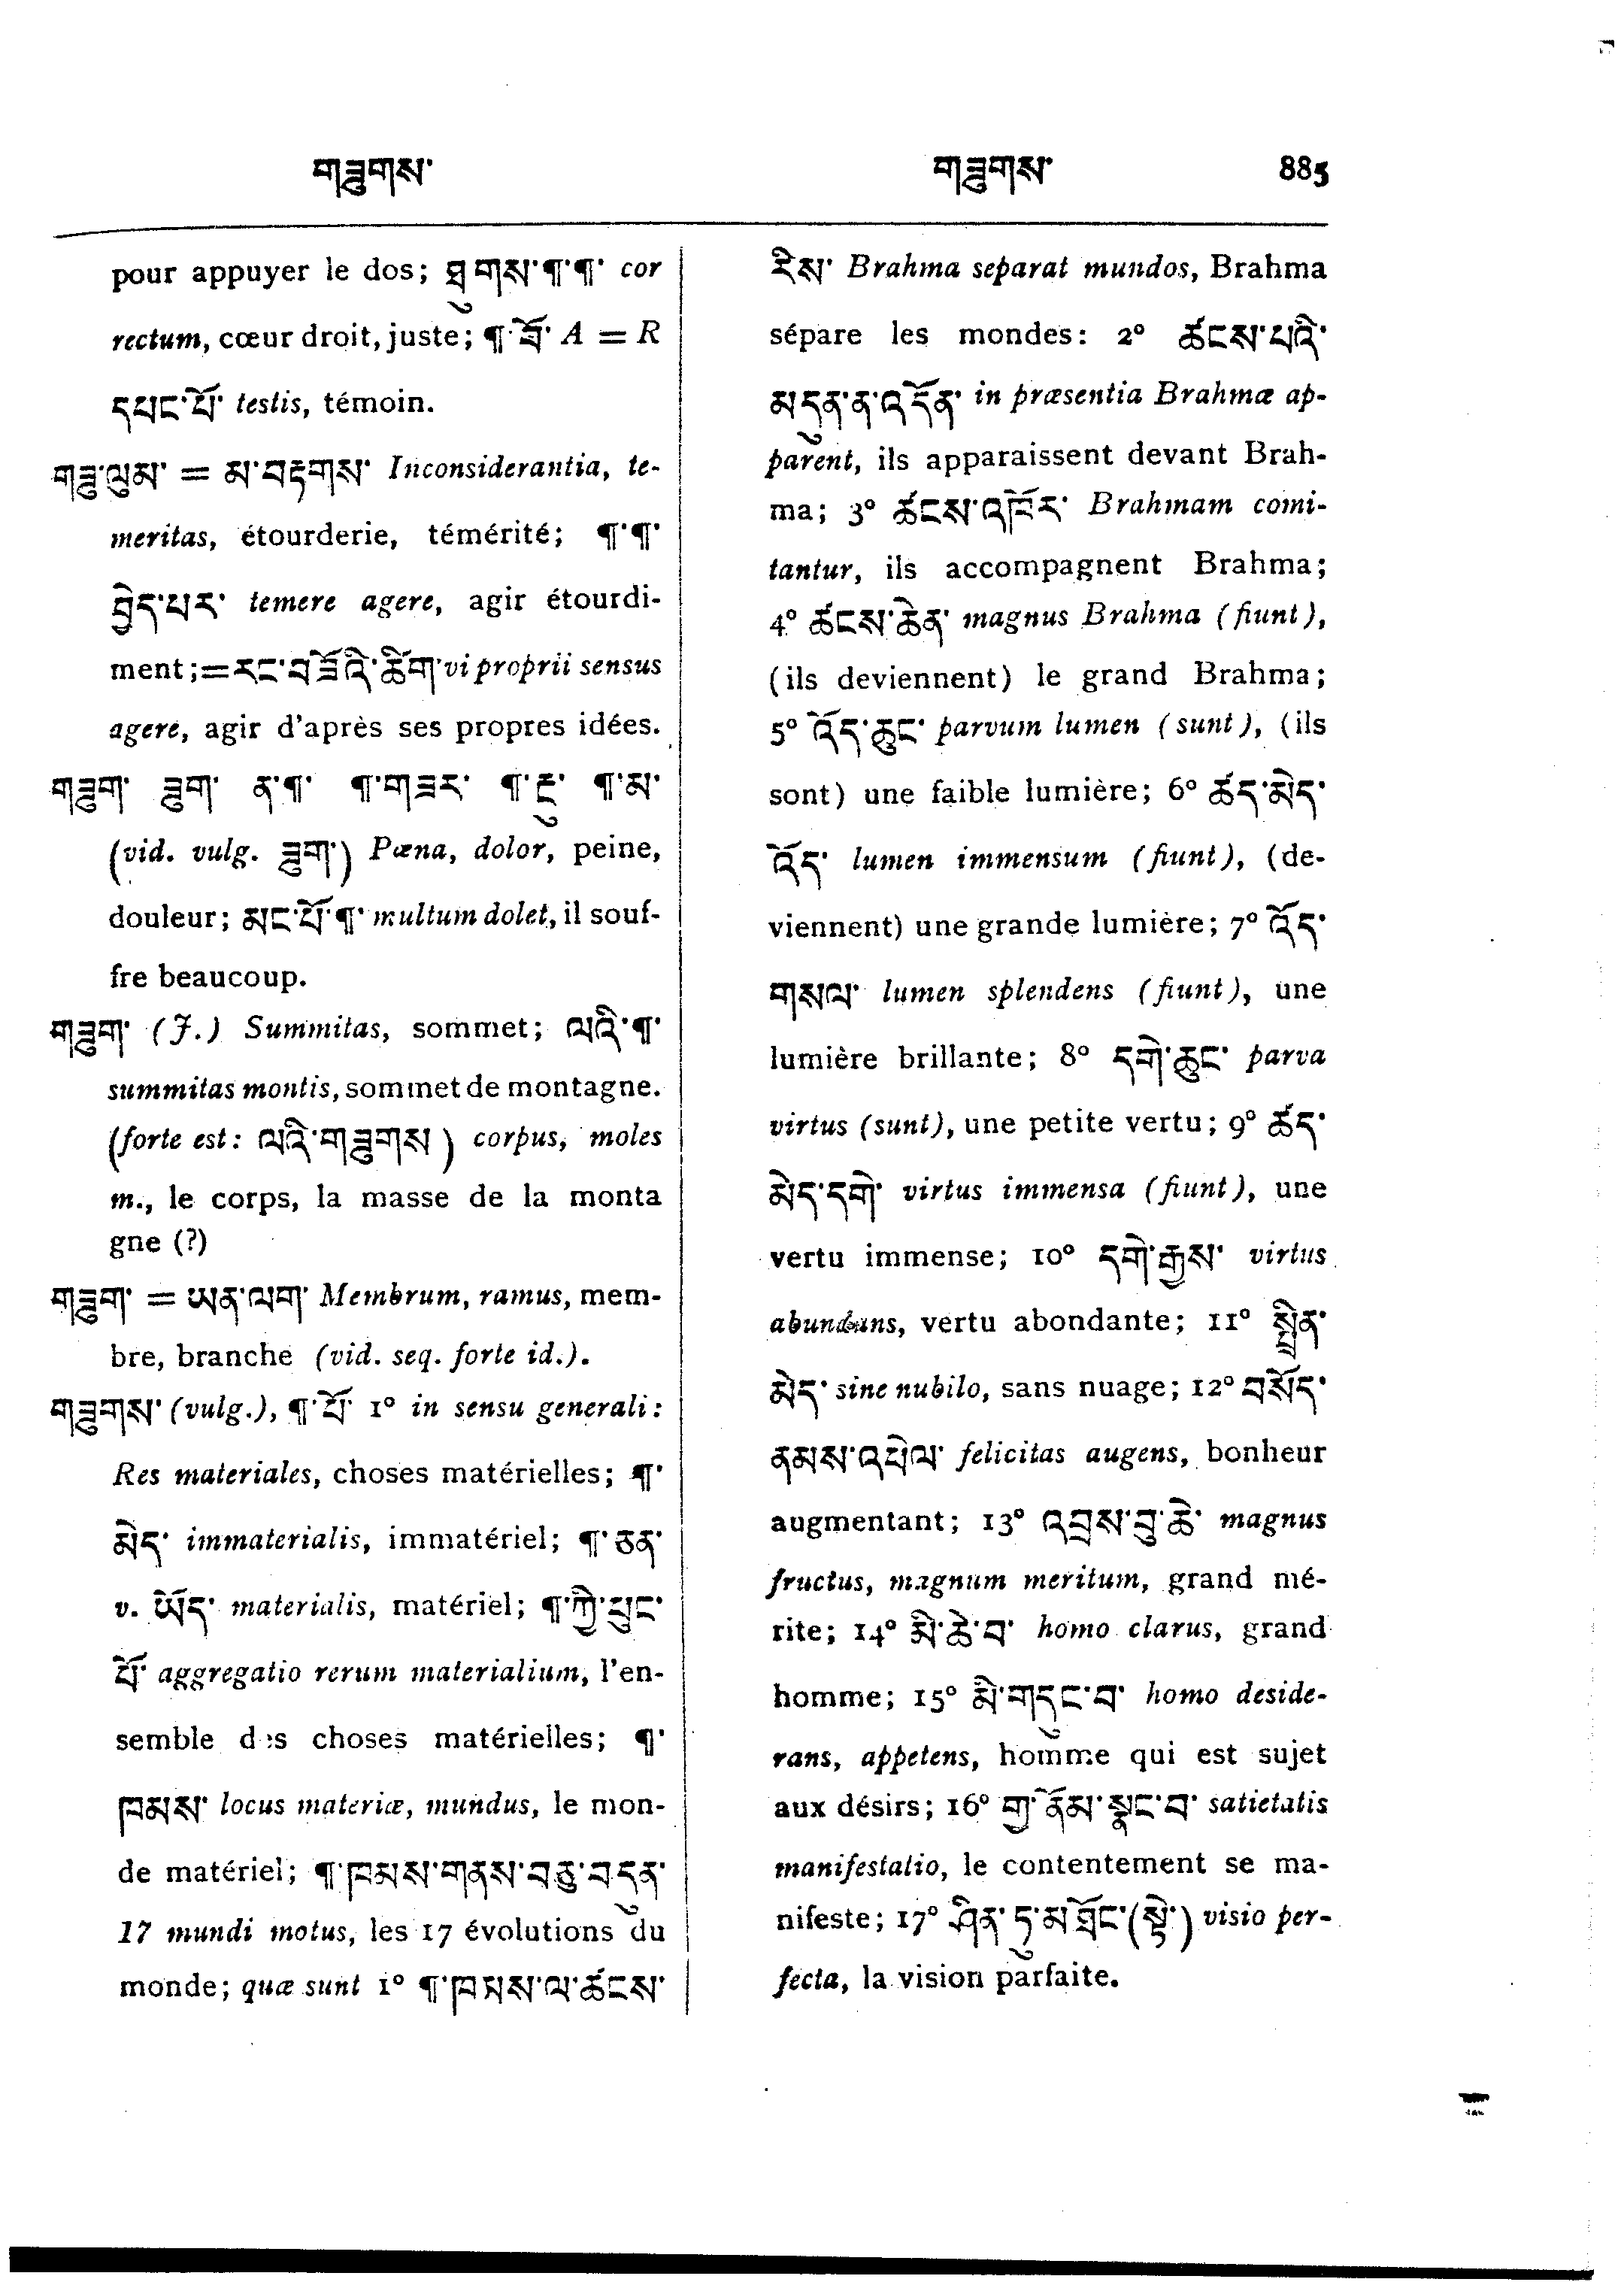 གཟུགས་ གཟུགས་ 885
pour appuyer le dos; ཐུགས་¶་¶་ cor
rectum, cœur droit, juste; ¶་བོ་ A = R
དཔང་པོ་ testis, témoin.
གཟུ་ལུམ་ = མ་བརྟགས་ Inconsiderantia, te-
meritas, étourderie, témérité; ¶་¶་
བྱེད་པར་ temere agere, agir étourdi-
ment;=རང་བཟོའི་ཚིག་vi proprii sensus
agere, agir d’après ses propres idées.
གཟུག་ ཟུག་ ན་¶་ ¶་གཟར་ ¶་རྔུ་ ¶་མ་
(vid. vulg. ཟུག་) Pœna, dolor, peine,
douleur; མང་པོ་¶་ multum dolet, il souf-
fre beaucoup.
གཟུག་ (J.) Summitas, sommet; ལའི་¶་
summitas montis, sommet de montagne.
(forte est: ལའི་གཟུགས) corpus, moles
m., le corps, la masse de la monta
gne (?)
གཟུག་ = ཡན་ལག་ Membrum, ramus, mem-
bre, branche (vid. seq. forte id.).
གཟུགས་ (vulg.), ¶་པོ་ 1° in sensu generali:
Res materiales, choses matérielles; ¶་
མེད་ immaterialis, immatériel; ¶་ཅན་
v. ཡོད་ materialis, matériel; ¶་ཀྱི་ཕུང་
པོ་ aggregatio rerum materialium, l’en-
semble des choses matérielles; ¶་
ཁམས་ locus materiæ, mundus, le mon-
de matériel; ¶་ཁམས་གནས་བཅུ་བདུན་
17 mundi motus, les 17 évolutions du
monde; quæ sunt 1° ¶་ཁམས་ལ་ཚངས་
རིས་ Brahma separat mundos, Brahma
sépare les mondes: 2° ཚངས་པའི་
མདུན་ན་འདོན་ in præsentia Brahmæ ap-
parent, ils apparaissent devant Brah-
ma; 3° ཚངས་འཁོར་ Brahmam comi-
tantur, ils accompagnent Brahma;
4° ཚངས་ཆེན་ magnus Brahma (fiunt),
(ils deviennent) le grand Brahma;
5° འོད་ཆུང་ parvum lumen (sunt), (ils
sont) une faible lumière; 6° ཚད་མེད་
འོད་ lumen immensum (fiunt), (de-
viennent) une grande lumière; 7° འོད་
གསལ་ lumen splendens (fiunt), une
lumière brillante; 8° དགེ་ཆུང་ parva
virtus (sunt), une petite vertu; 9° ཚད་
མེད་དགེ་ virtus immensa (fiunt), une
vertu immense; 10° དགེ་རྒྱས་ virtus
abundans, vertu abondante; 11° སྤྲིན་
མེད་ sine nubilo, sans nuage; 12° བསོད་
ནམས་འཕེལ་ felicitas augens, bonheur
augmentant; 13° འབྲས་བུ་ཆེ་ magnus
fructus, magnum meritum, grand mé-
rite; 14° མི་ཆེ་བ་ homo clarus, grand
homme; 15° མི་གདུང་བ་ homo deside-
rans, appetens, homme qui est sujet
aux désirs; 16° གྱ་ནོམ་སྣང་བ་ satietatis
manifestatio, le contentement se ma-
nifeste; 17° ཤིན་ཏུ་མཐོང་(སྟེ་) visio per-
fecta, la vision parfaite.